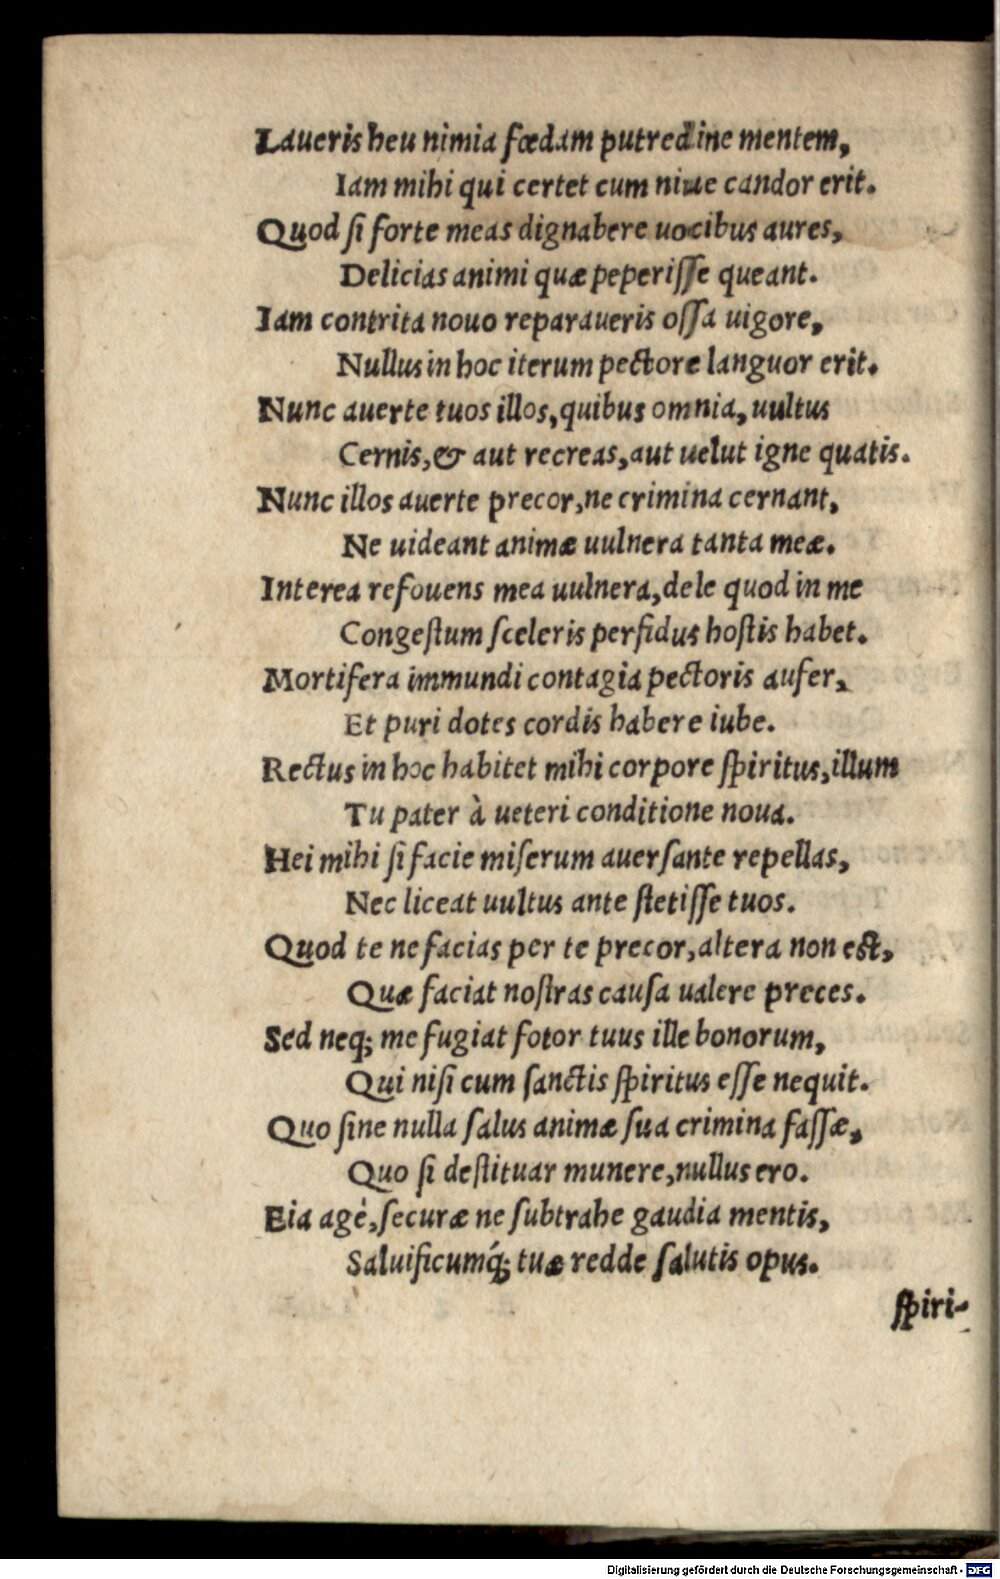 Laueris heu nimia fœdam putredine mentem,
Iam mihi qui certet cum niue candor erit.
Quod ſi forte meas dignabere uocibus aures,
Delicias animi quæ peperiſſe queant.
Iam contrita nouo reparaueris oſſa uigore,
Nullus in hoc iterum pectore languor erit.
Nunc auerte tuos illos, quibus omnia, uultus
Cernis, & aut recreas, aut uelut igne quatis.
Nunc illos auerte precor, ne crimina cernant,
Ne uideant animæ uulnera tanta meæ.
Interea refouens mea uulnera, dele quod in me
Congeſtum ſceleris perfidus hoſtis habet.
Mortifera immundi contagia pectoris aufer,
Et puri dotes cordis habere iube.
Rectus in hoc habitet mihi corpore ſpiritus, illum
Tu pater à ueteri conditione noua.
Hei mihi ſi facie miſerum auerſante repellas,
Nec liceat uultus ante ſtetiſſe tuos.
Quod te ne facias per te precor, altera non eſt,
Quæ faciat noſtras cauſa ualere preces.
Sed neq; me fugiat fotor tuus ille bonorum,
Qui niſi cum ſanctis ſpiritus eſſe nequit.
Quo ſine nulla ſalus animæ ſua crimina faſſæ,
Quo ſi deſtituar munere, nullus ero.
Eia agè, ſecuræ ne ſubtrahe gaudia mentis,
Saluificumq́; tuæ redde ſalutis opus.
ſpiri-
Digitalisierung gefördert durch die Deutsche Forschungsgemeinschaft - DFG